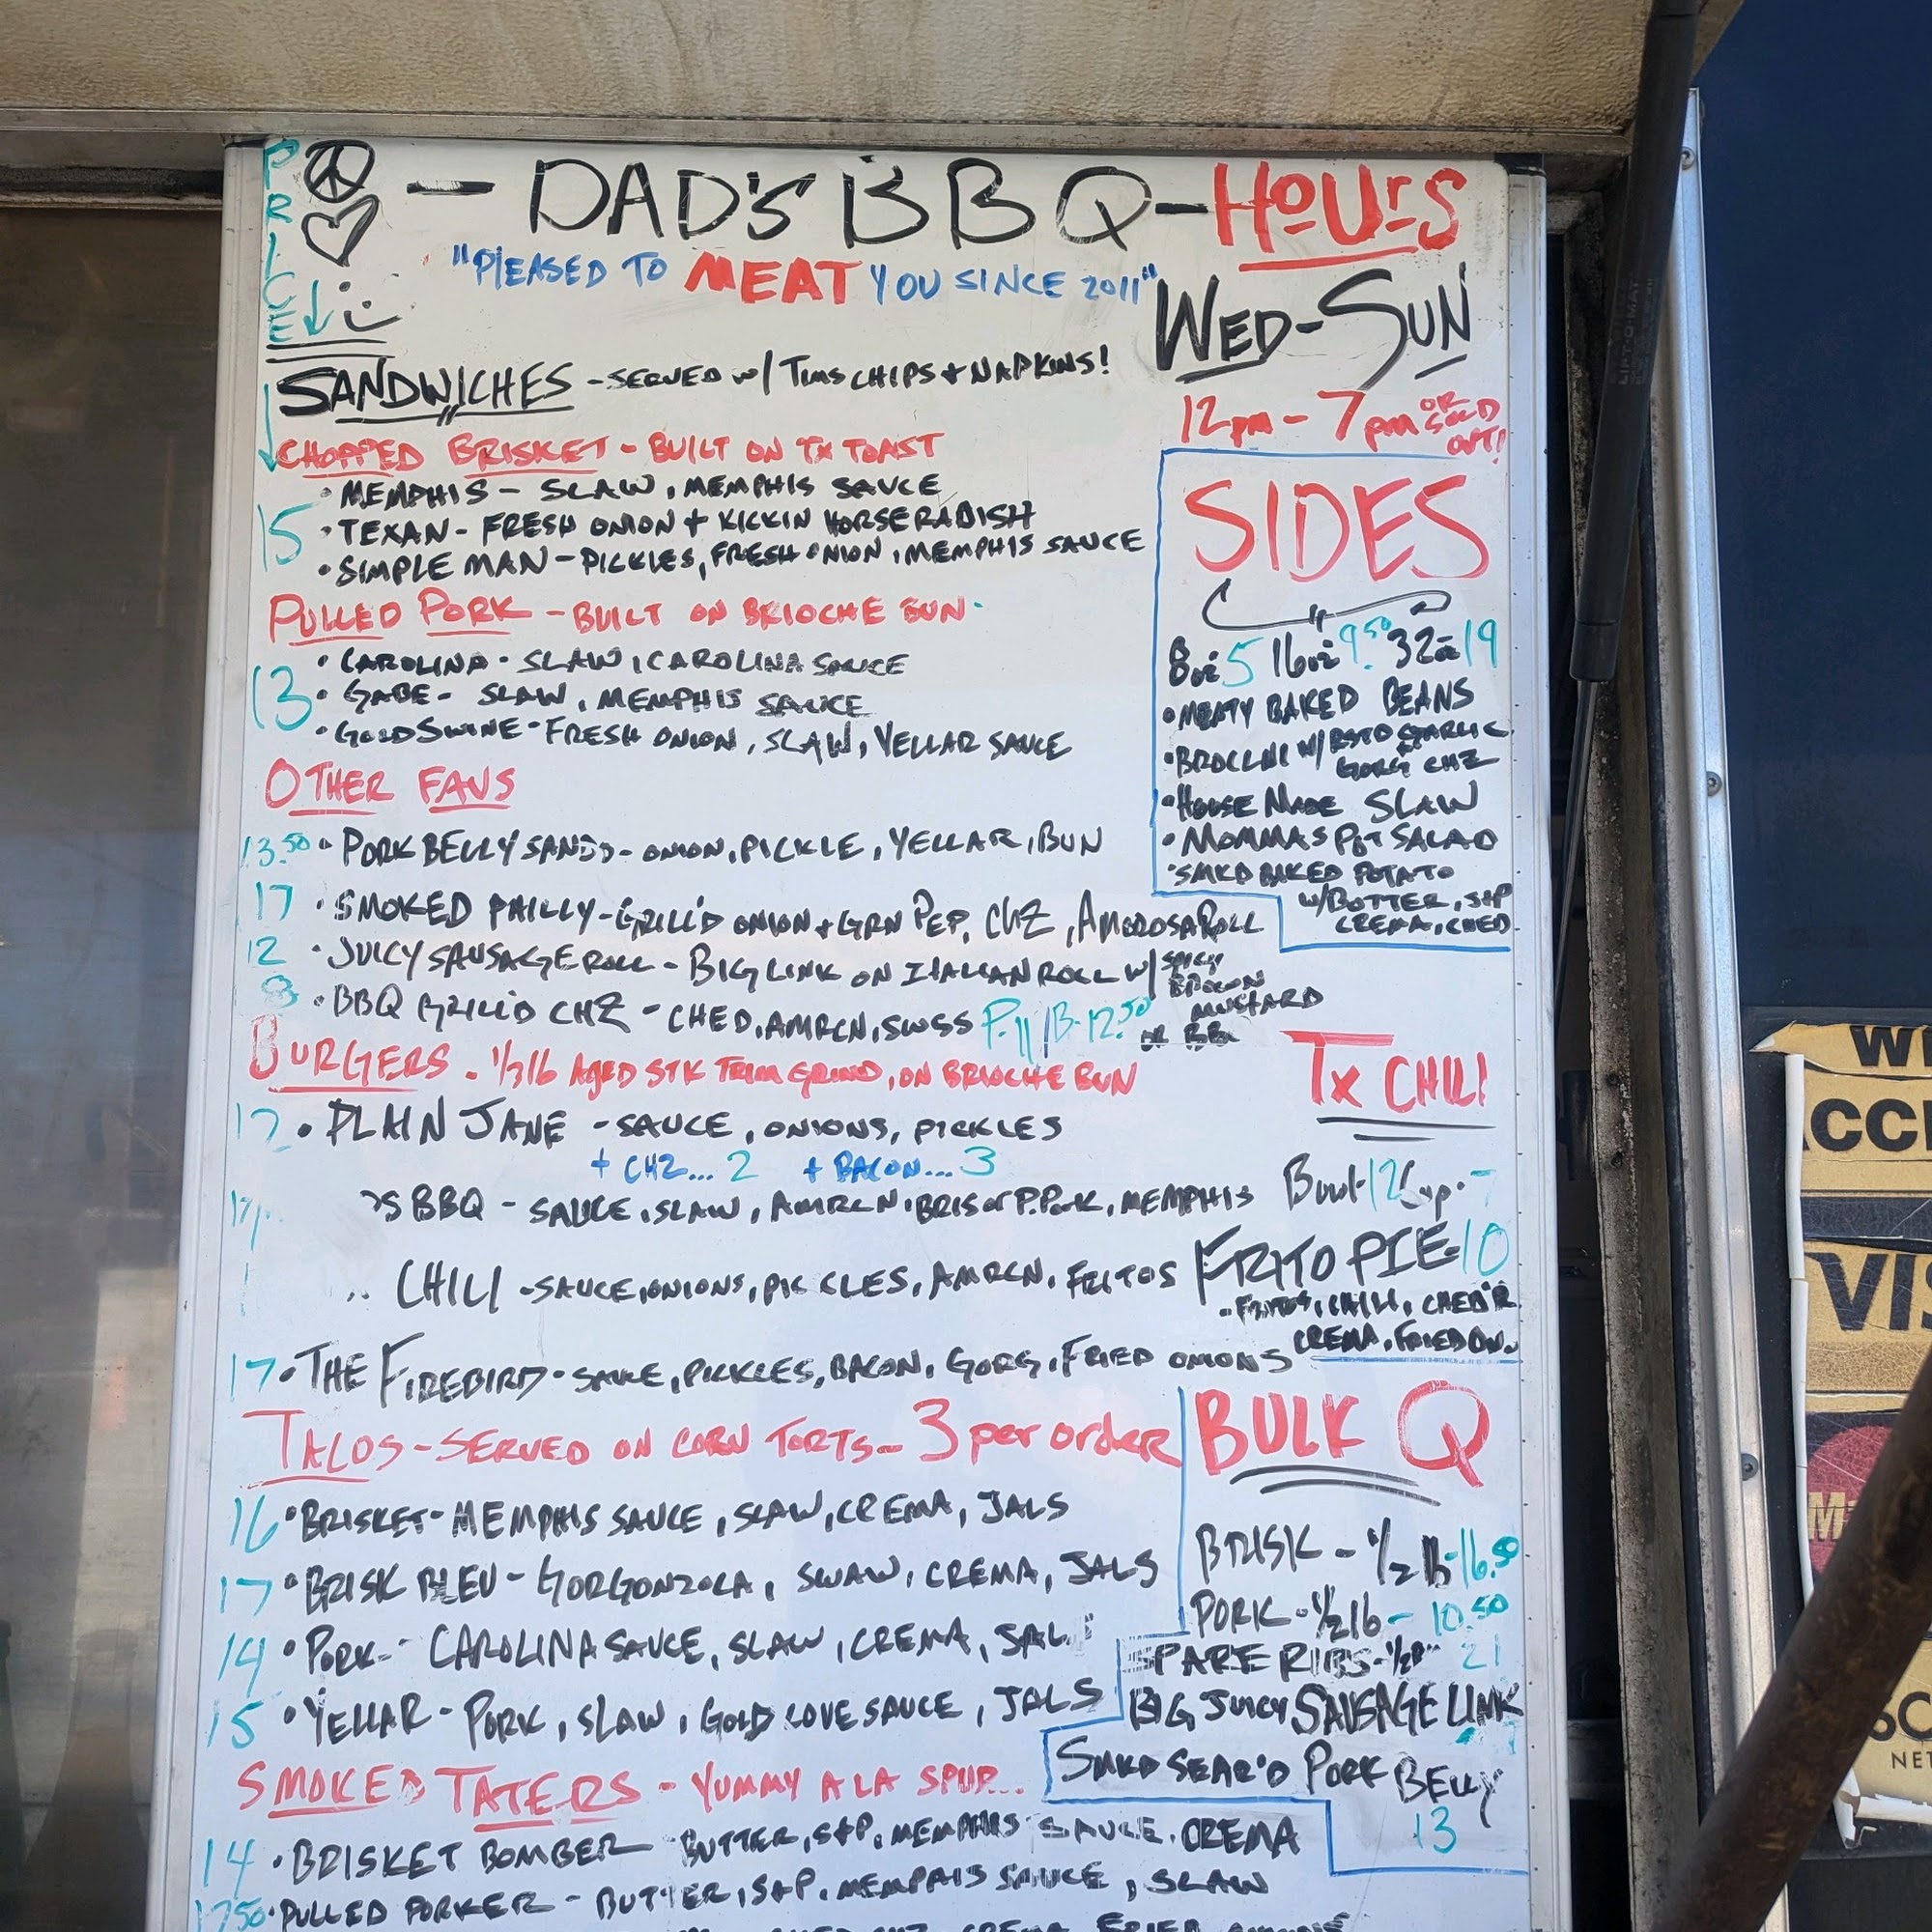 PRICE
- DAD'S BBQ - HOUrS
"PLEASED TO MEAT YOU SINCE 2011"
WED-SUN
12pm - 7pm OR SOLD OUT!
SANDWICHES - SERVED w/ TIMS CHIPS + NAPKINS!
CHOPPED BRISKET - BUILT ON TX TOAST
15
• MEMPHIS - SLAW, MEMPHIS SAUCE
• TEXAN - FRESH ONION + KICKIN HORSERADISH
• SIMPLE MAN - PICKLES, FRESH ONION, MEMPHIS SAUCE
PULLED PORK - BUILT ON BRIOCHE BUN
13
• CAROLINA - SLAW, CAROLINA SAUCE
• GABE - SLAW, MEMPHIS SAUCE
• GOLD SWINE - FRESH ONION, SLAW, YELLAR SAUCE
OTHER FAVS
13.50 • PORK BELLY SANDO - ONION, PICKLE, YELLAR, BUN
17 • SMOKED PHILLY - GRILL'D ONION + GRN PEP, CHZ, AMOROSA ROLL
12 • JUICY SAUSAGE ROLL - BIG LINK ON ITALIAN ROLL W/ SPICY BROWN MUSTARD OR BBQ
8 • BBQ GRILL'D CHZ - CHED, AMRCN, SWSS P-11 B-12.50
BURGERS - 1/3 lb AGED STK TRIM GRIND, ON BRIOCHE BUN
12 • PLAIN JANE - SAUCE, ONIONS, PICKLES
+ CHZ... 2 + BACON... 3
BBQ - SAUCE, SLAW, AMRCN, BRIS or P.PORK, MEMPHIS
CHILI - SAUCE, ONIONS, PICKLES, AMRCN, FRITOS
17 • THE FIREBIRD - SAUCE, PICKLES, BACON, GORG, FRIED ONIONS
TACOS - SERVED ON CORN TORTS - 3 per order
16 • BRISKET - MEMPHIS SAUCE, SLAW, CREMA, JALS
17 • BRISK BLEU - GORGONZOLA, SWAW, CREMA, JALS
14 • PORK - CAROLINA SAUCE, SLAW, CREMA, JAL
15 • YELLAR - PORK, SLAW, GOLD LOVE SAUCE, JALS
SMOKED TATERS - YUMMY A LA SPUD...
14 • BRISKET BOMBER BUTTER, S+P, MEMPHIS SAUCE, CREMA
1250 • PULLED PORKER - BUTTER, S+P, MEMPHIS SAUCE, SLAW
SIDES
8oz 5 16oz 9.50 32oz 19
• MEATY BAKED BEANS
• BROCLINI W/ RSTD GARLIC + GORG CHZ
• HOUSE MADE SLAW
• MOMMAS POT SALAD
• SMKD BAKED POTATO
W/ BUTTER, S+P
CREMA, CHED
TX CHILI
Bowl-12 Cup-7
FRITO PIE-10
- FRITOS, CHILI, CHED'R
CREMA, FRIED ON.
BULK Q
BRISK - 1/2 lb - 16.50
PORK - 1/2 lb - 10.50
SPARE RIBS - 1/2 21
BIG JUICY SAUSAGE LINK
SMKD SEAR'D PORK BELLY
13
WE
ACC
VIS
M
NET